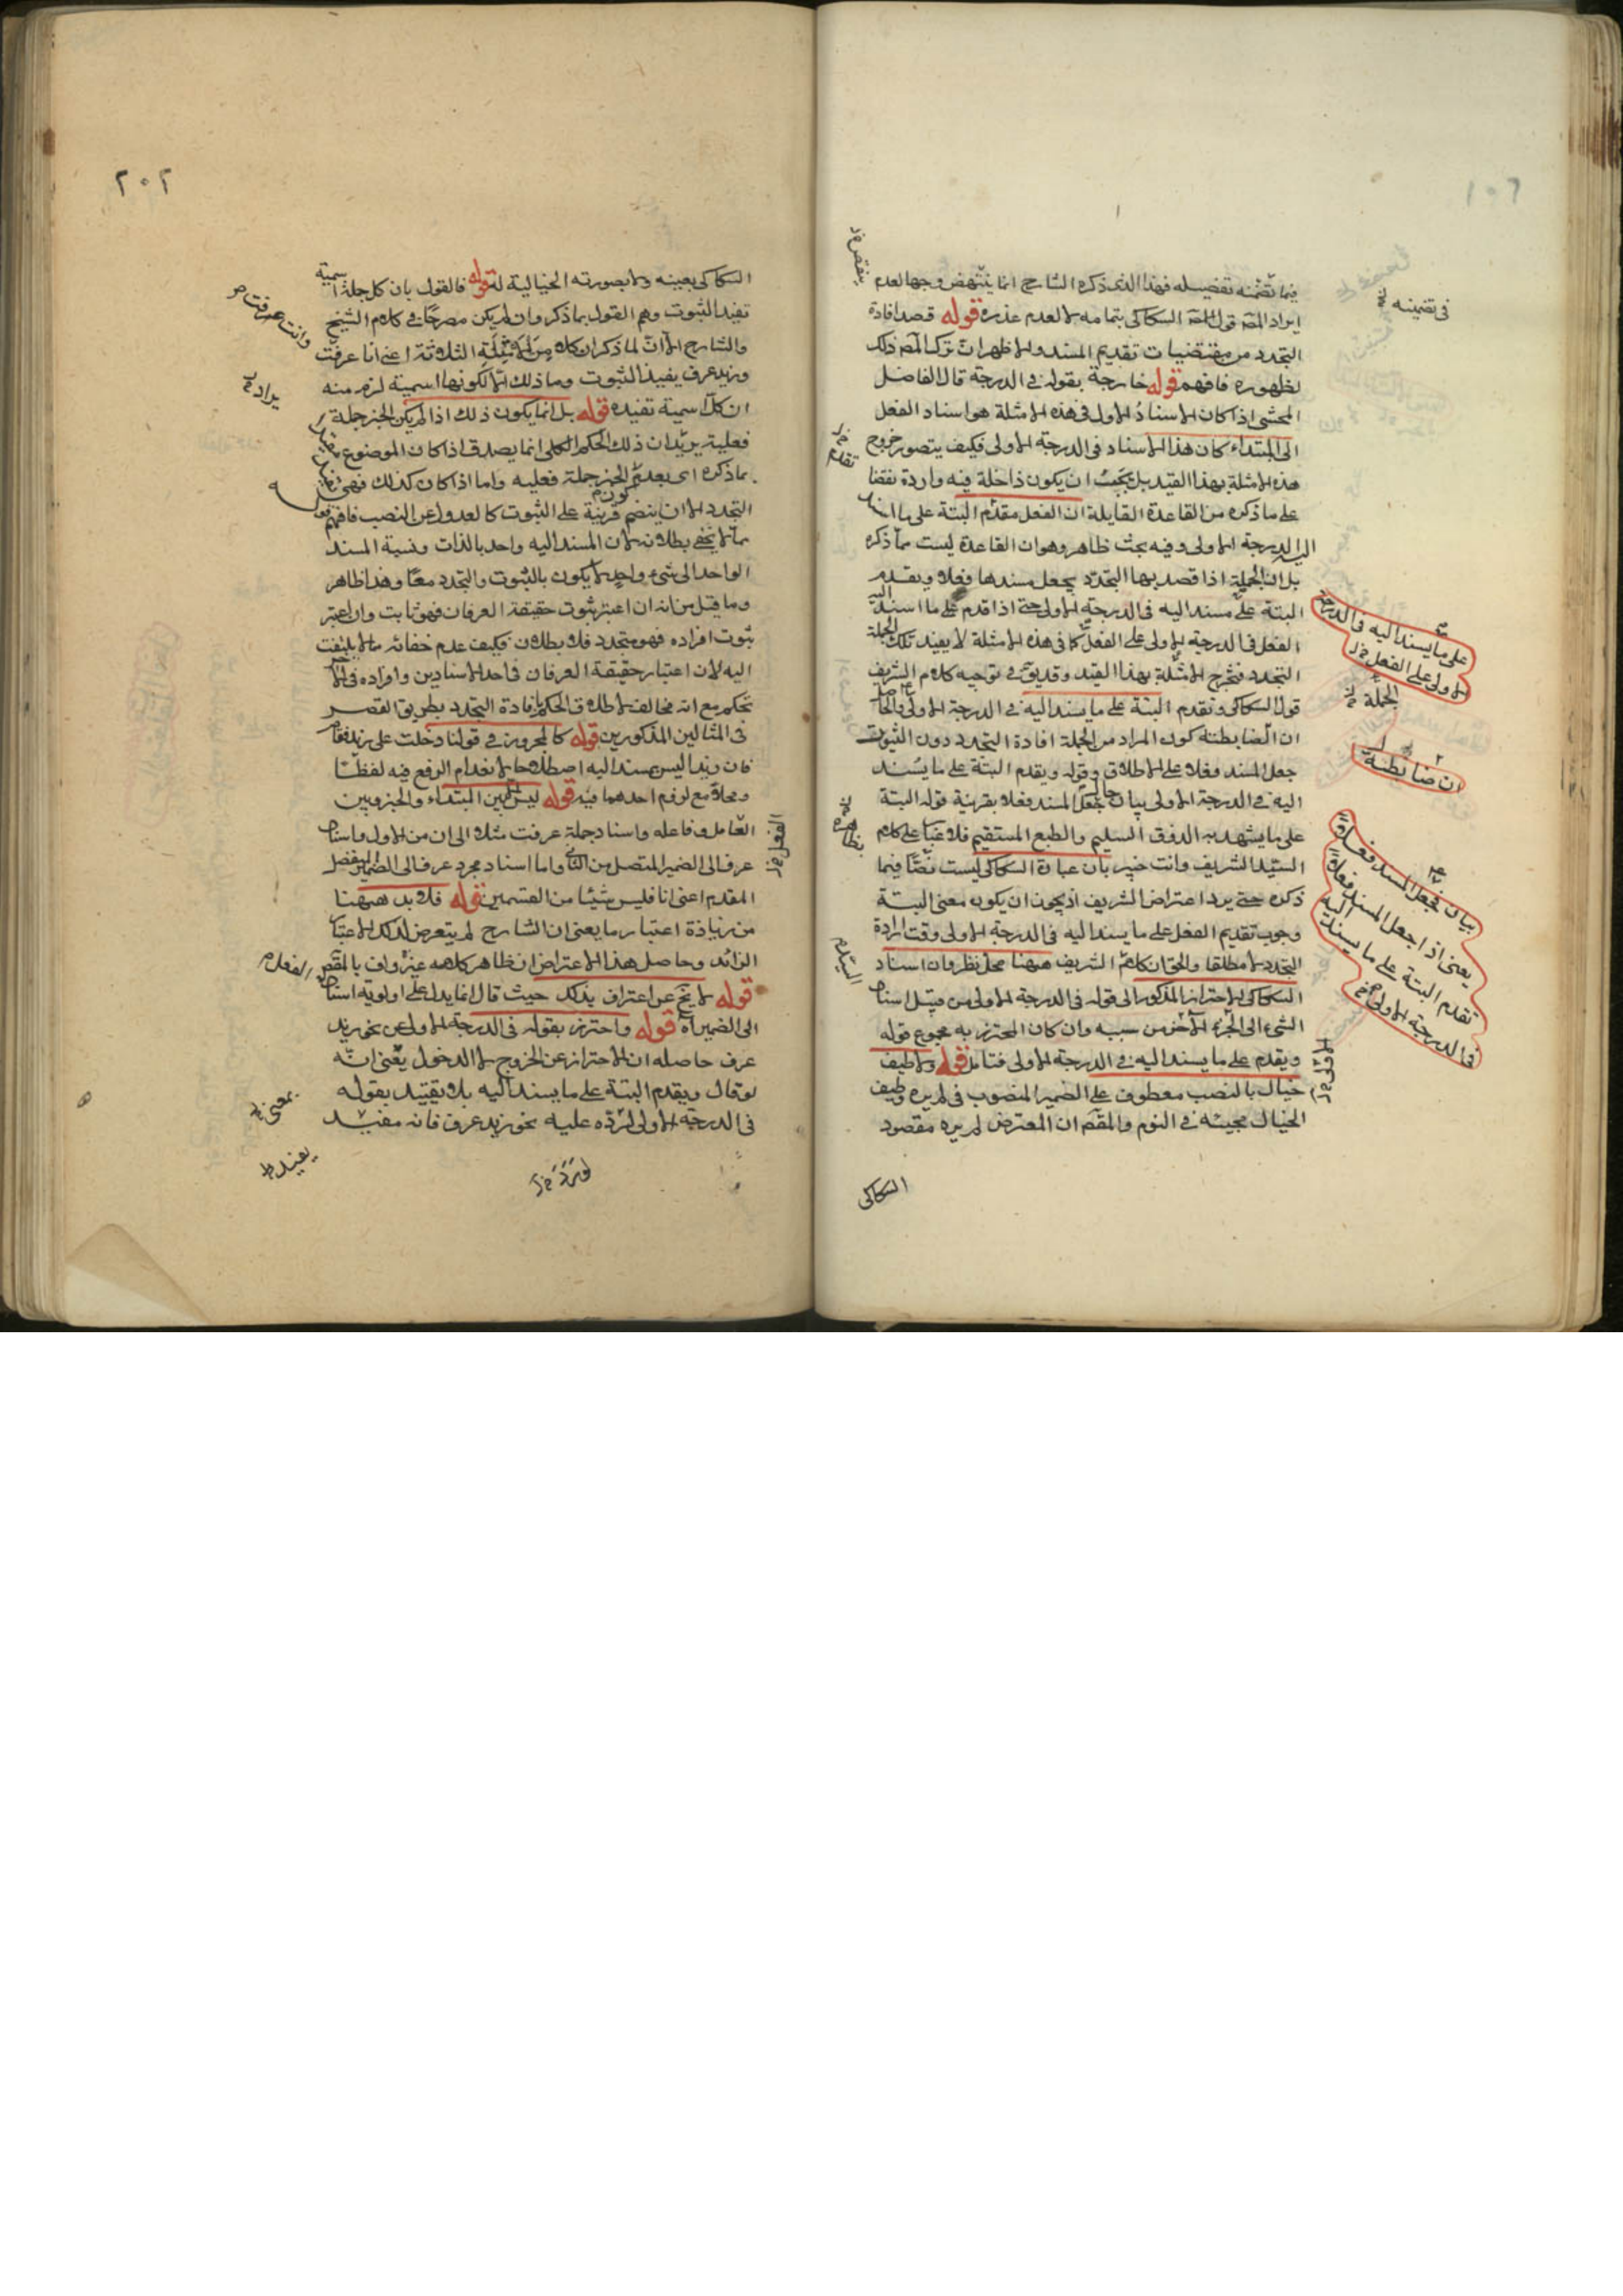 فيما تضمنه تفصيله فهذا الذى ذكره الشارح انما ينتهض وجها لعدم
ايراد المص قول السكاكى بتمامه لا لعدم عذره قوله قصد افادة
التجدد من مقتضيات تقديم المسند والاظهر ان ترك المص ذلك
لظهوره فافهم قوله خارجة بقوله فى الدرجة قال الفاضل
المحشى اذا كان الاسناد الاول فى هذه الامثلة هو اسناد الفعل
الى المبتداء كان هذا الاسناد فى الدرجة الاولى فكيف يتصور خروج
هذه الامثلة بهذا القيد بل يجب ان يكون داخلة فيه واردة نقضا
على ما ذكره من القاعدة القايلة ان الفعل مقدم البتة على ما اسند
اليه الدرجة الاولى وفيه بحث ظاهر وهو ان القاعدة ليست مما ذكره
بل ان الجملة اذا قصد بها التجدد يجعل مسندها فعلا ويقدم
البتة على مسند اليه فى الدرجة الاولى حتى اذا قدم على ما اسند اليه
الفعل فى الدرجة الاولى على الفعل كما فى هذه الامثلة لا يفيد تلك الجملة
التجدد فتخرج الامثلة بهذا القيد وقد يق فى توجيه كلام الشريف
قول السكاكى وتقدم البتة على ما يسند اليه فى الدرجة الاولى والحاصل
ان الضابطة كون المراد من الجملة افادة التجدد دون الثبوت
جعل المسند فعلا على الاطلاق وقوله ويقدم البتة على ما يسند
اليه فى الدرجة الاولى بيان حال جعل المسند فعلا بقرينة قوله البتة
على ما يشهد به الذوق السليم والطبع المستقيم فلا غبار على كلام
السيد الشريف وانت خبير بان عبارة السكاكى ليست نصا فيما
ذكره حتى يرد اعتراض الشريف اذ يجوز ان يكون معنى البتة
وجوب تقديم الفعل على ما يسند اليه فى الدرجة الاولى وقت ارادة
التجدد لا مطلقا والحق ان كلام الشريف ههنا محل نظر وان اسناد
السكاكى الاحتراز المذكور الى قوله فى الدرجة الاولى من قبيل اسناد
الشىء الى الجزء الاخر من سببه وان كان المحترز به مجموع قوله
ويقدم على ما يسند اليه فى الدرجة الاولى فتامل قوله ولا طيف
خيال بالنصب معطوف على الضمير المنصوب فى لم يره وطيف
الخيال مجيئه فى النوم والمقص ان المعترض لم يره مقصود
السكاكى
فى تضمينه
على ما يسند اليه فى الدرجة
الاولى على الفعل
الجملة
ان ضابطة
بيان لجعل المسند فعلا
يعنى اذا جعل المسند فعلا
تقدم البتة على ما يسند اليه
فى الدرجة الاولى
٢٠٢
السكاكى بعينه ولا بصورته الخيالية له قوله فالقول بان كل جملة اسمية
تفيد الثبوت وهم القول بما ذكر وان لم يكن مصرحا فى كلام الشيخ
والشارح الا ان لما ذكر ان كلا من الامثلة الثلاثة اعنى انا عرفت
وزيد عرف يفيد الثبوت وما ذلك الا لكونها اسمية لزم منه
ان كل اسمية تفيده قوله بل انما يكون ذلك اذا لم يكن الخبر جملة
فعلية يريد ان ذلك الحكم الكلى انما يصدق اذا كان الموضوع
بما ذكره اى بعدم كون الخبر جملة فعلية واما اذا كان كذلك فهى تفيد
التجدد الا ان ينضم قرينة على الثبوت كالعدول عن النصب فافهم
مما لا يخفى بطلانه لان المسند اليه واحد بالذات ونسبة المسند
الواحد الى شىء واحد لا يكون بالثبوت والتجدد معا وهذا ظاهر
وما قيل من انه ان اعتبر ثبوت حقيقة العرفان فهو ثابت وان اعتبر
ثبوت افراده فهو متجدد فلا بطلان فكيف عدم خفائه مما لا يلتفت
اليه لان اعتبار حقيقة العرفان فى احد الاسنادين وافراده فى الاخر
تحكم مع انه مخالف لاطلاق الحكم بافادة التجدد بطريق القصر
فى المثالين المذكورين قوله كالمجرور فى قولنا دخلت على زيد فقام
فان زيدا ليس بمسند اليه اصطلاحا لانعدام الرفع فيه لفظا
ومحلا مع لزوم احدهما فيه قوله ليس بين المبتداء والخبر وبين
العامل وفاعله واسناد جملة عرفت مثلا الى ان من الاول واسناد
عرف الى الضمير المتصل من الثانى واما اسناد مجرد عرف الى الضمير المنفصل
المقدم اعنى انا فليس شيئا من القسمين قوله فلا بد ههنا
من زيادة اعتبار ما يعنى ان الشارح لم يتعرض لذلك الاعتبار
الزائد وحاصل هذا الاعتراض ان ظاهر كلامه غير واف بالمقص
قوله لا يخ عن اعتراف بذلك حيث قال انما يدل على اولوية اسناد
الى الضمير اه قوله واحترز بقوله فى الدرجة الاولى عن نحو زيد
عرف حاصله ان الاحتراز عن الخروج لا الدخول يعنى انه
لو قال ويقدم البتة على ما يسند اليه بلا تقييد بقوله
فى الدرجة الاولى لتوره عليه نحو زيد عرف فانه مفيد
وانت عرفت
الفعل
بمعنى
يفيد